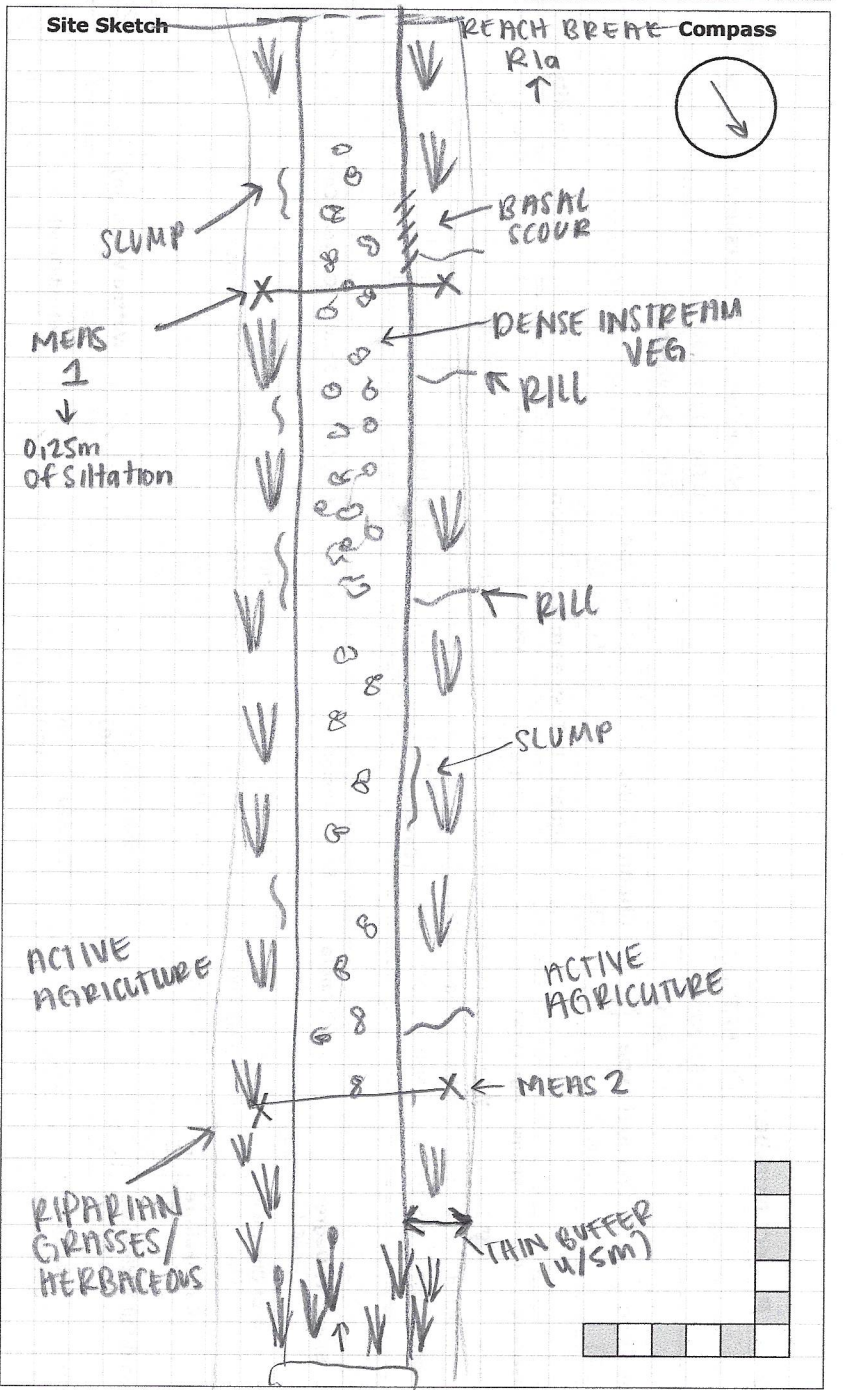 Site Sketch
REACH BREAK
R1a
Compass
SLUMP
BASAL
SCOUR
MEAS
1
0.25m
Of Siltation
DENSE INSTREAM
VEG
RILL
RILL
SLUMP
ACTIVE
AGRICUTURE
ACTIVE
AGRICUTURE
MEAS 2
RIPARIAN
GRASSES/
HERBACEOUS
THIN BUFFER